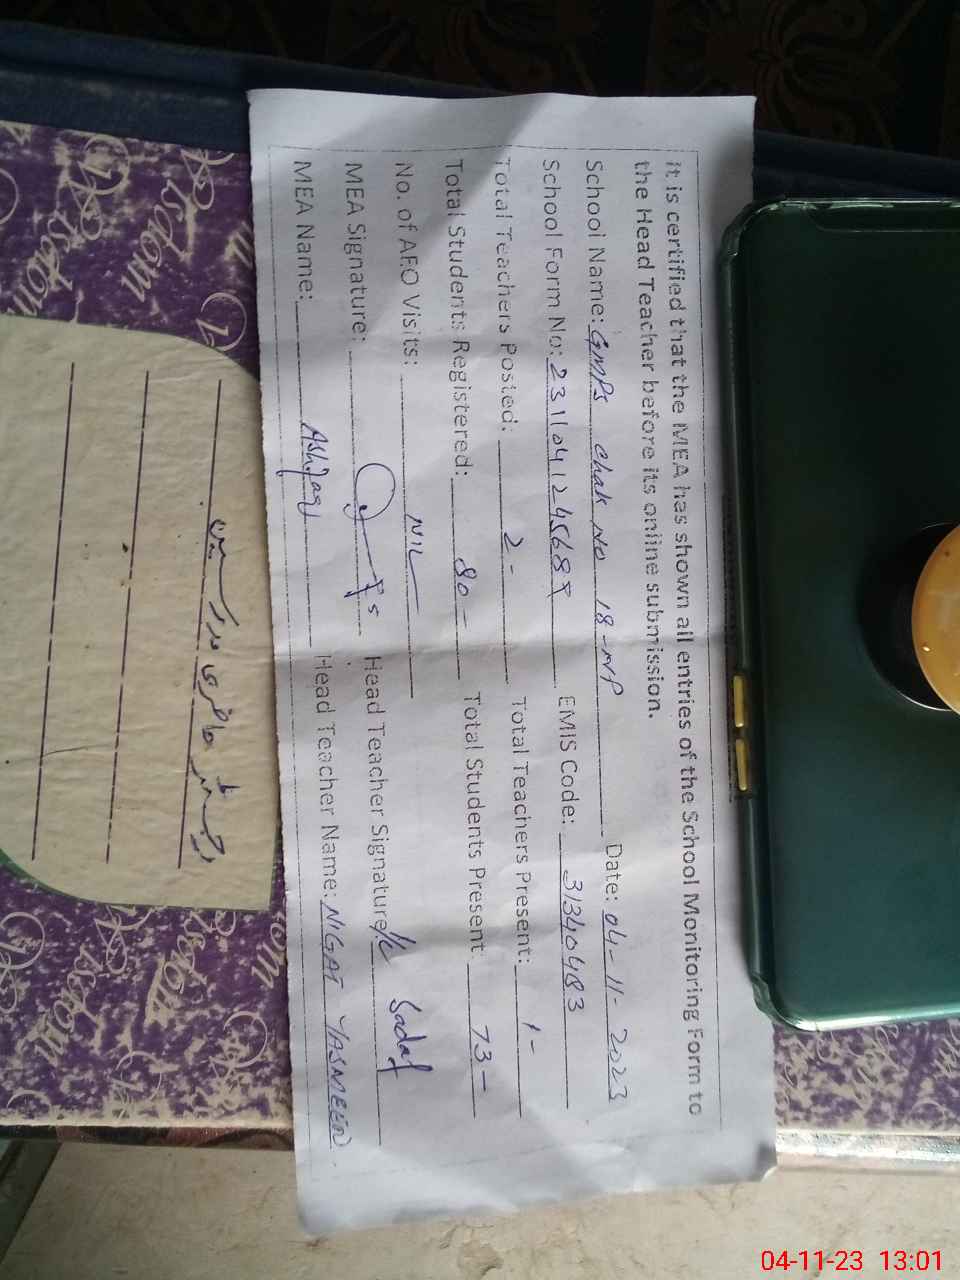 It is certified that the MEA has shown all entries of the School Monitoring Form to
the Head Teacher before its online submission.
School Name: GMPS Chak No 18-NP Date: 04-11-2023
School Form No: 23110412456 EMIS Code: 31340483
Total Teachers Posted: 2- Total Teachers Present: 1-
Total Students Registered: 80- Total Students Present 73-
No. of AEO Visits: NIL
MEA Signature: Head Teacher Signature: Sadaf
MEA Name: Ashfaq Head Teacher Name: NIGAT YASMEEN
رجسٹر حاضری مدرسین
04-11-23 13:01